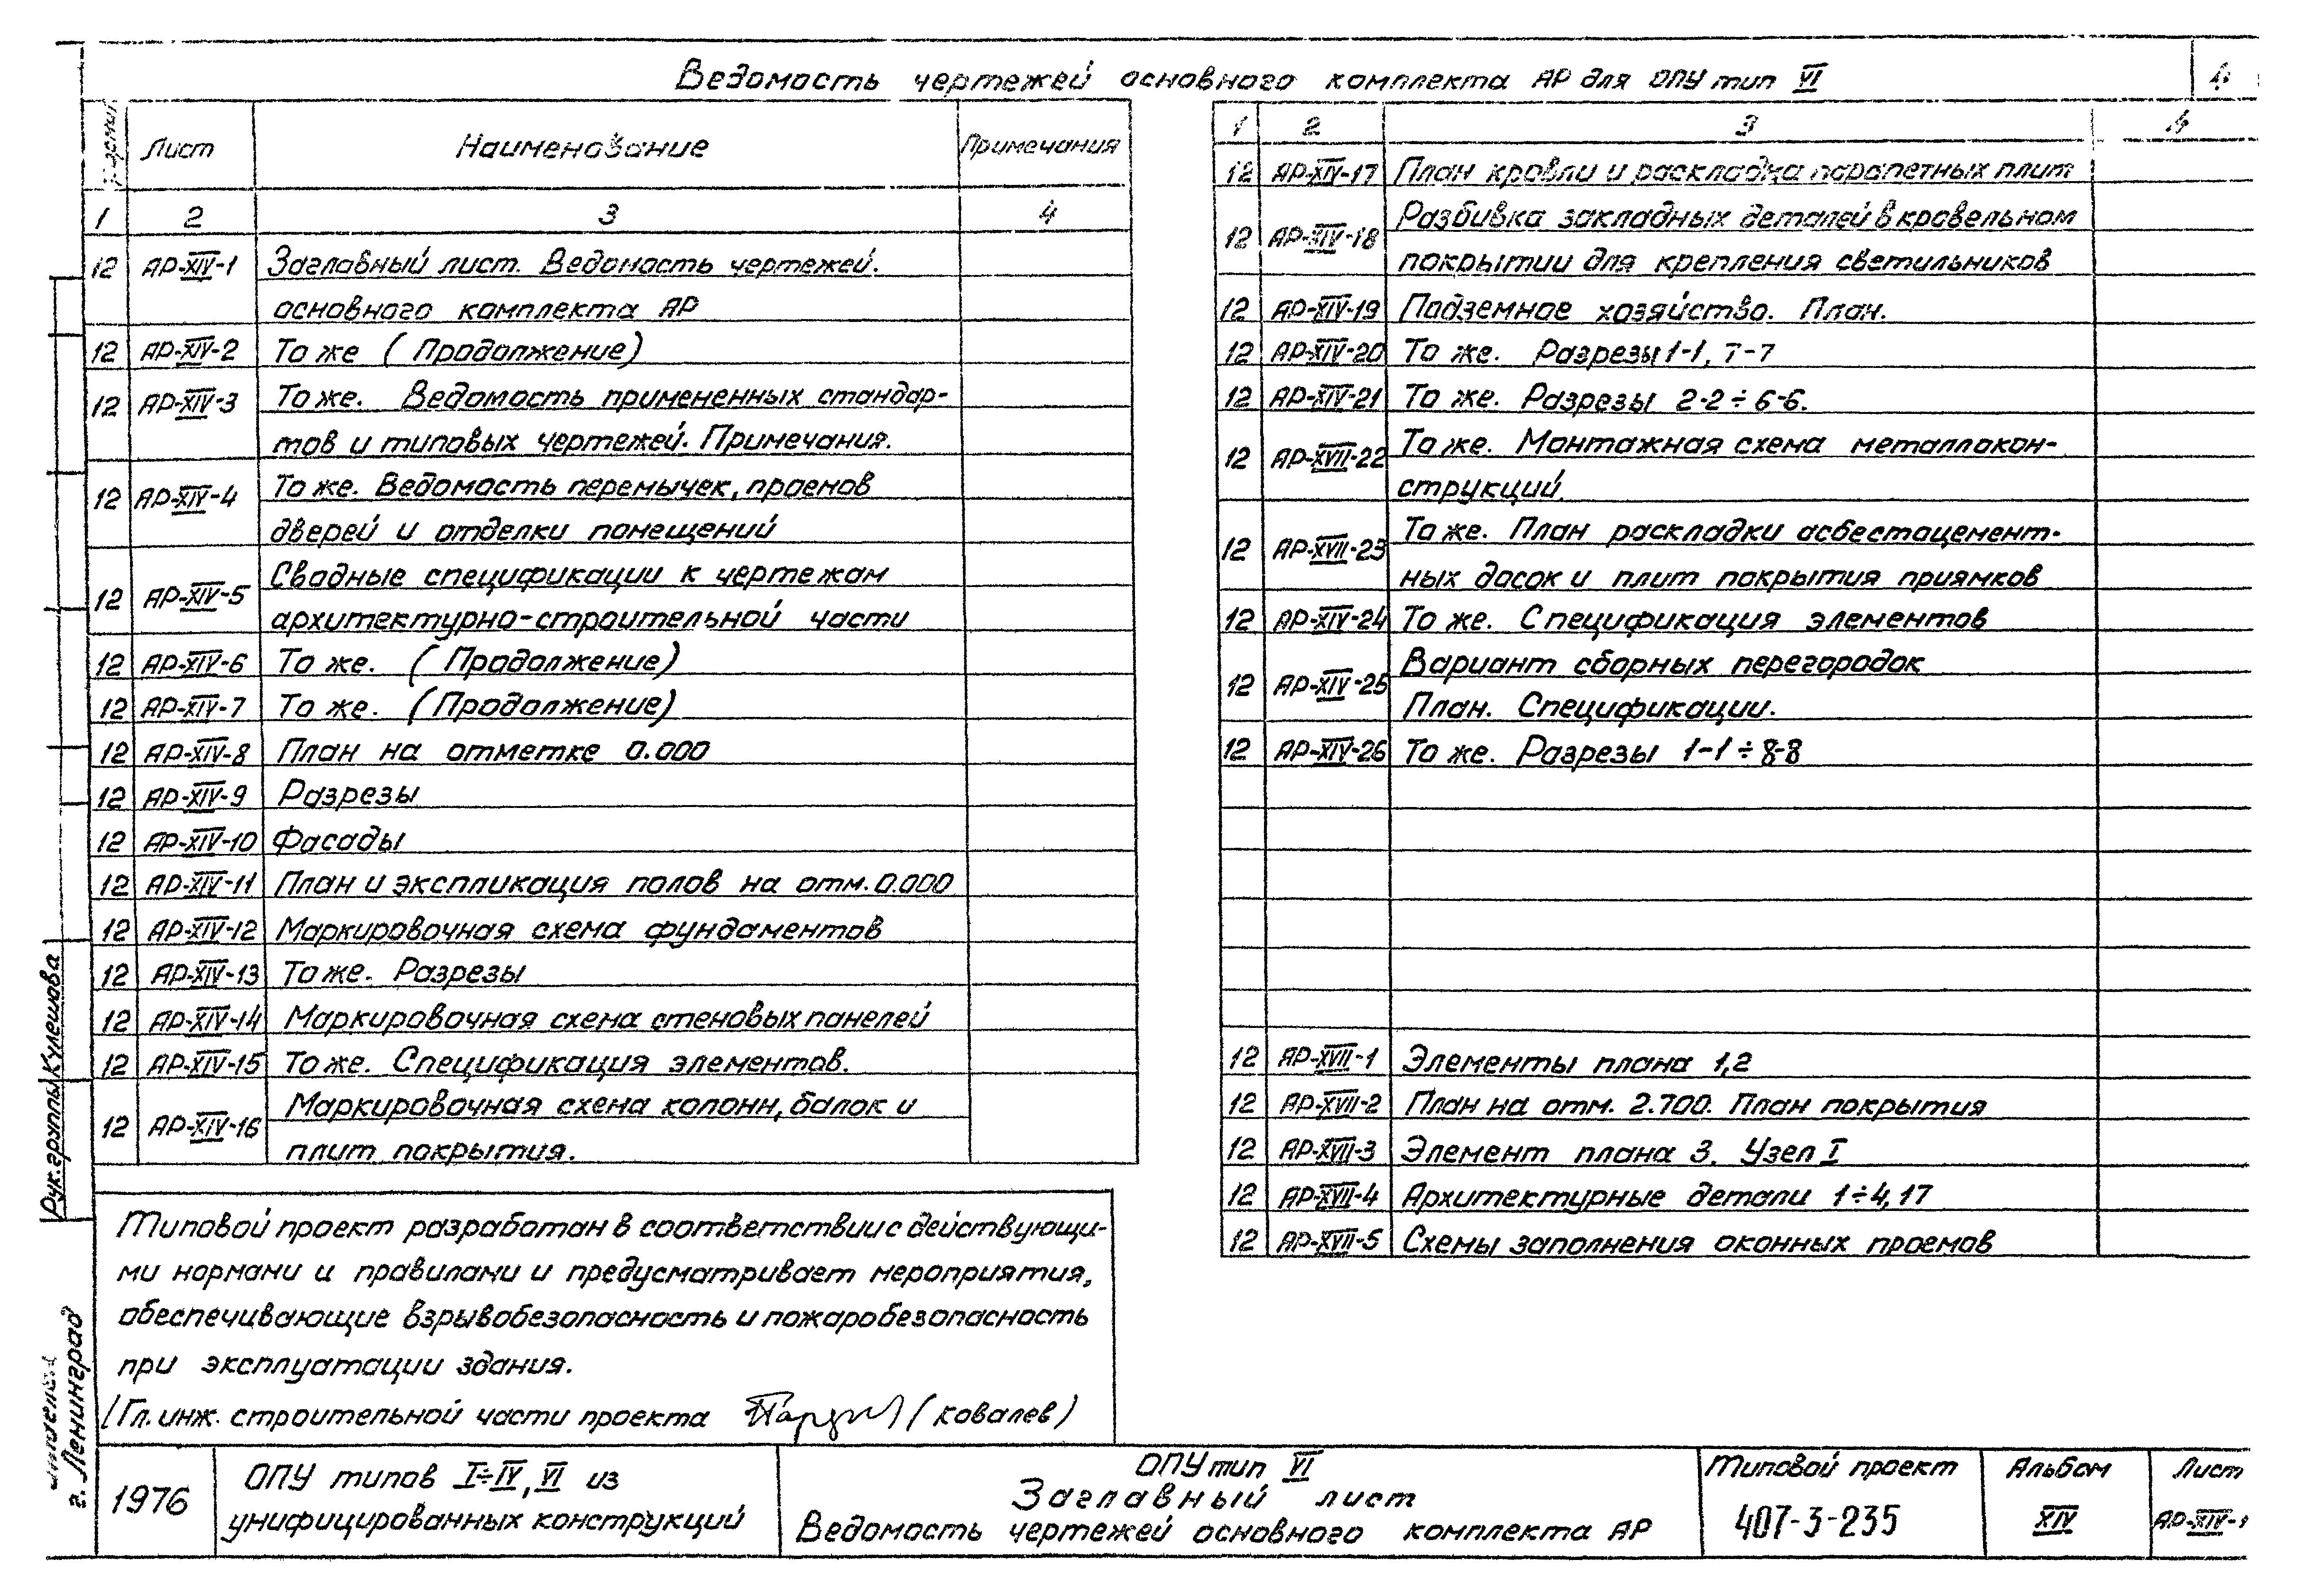 Ведомость чертежей основного комплекта АР для ОПУ тип VI
Лист Наименование Примечания
1 2 3 4
12 АР-XIV-1 Заглавный лист. Ведомость чертежей.
основного комплекта АР
12 АР-XIV-2 То же (Продолжение)
12 АР-XIV-3 То же. Ведомость примененных стандар-
тов и типовых чертежей. Примечания.
12 АР-XIV-4 То же. Ведомость перемычек, проемов
дверей и отделки помещений
12 АР-XIV-5 Сводные спецификации к чертежам
архитектурно-строительной части
12 АР-XIV-6 То же. (Продолжение)
12 АР-XIV-7 То же. (Продолжение)
12 АР-XIV-8 План на отметке 0.000
12 АР-XIV-9 Разрезы
12 АР-XIV-10 Фасады
12 АР-XIV-11 План и экспликация полов на отм. 0.000
12 АР-XIV-12 Маркировочная схема фундаментов
12 АР-XIV-13 То же. Разрезы
12 АР-XIV-14 Маркировочная схема стеновых панелей
12 АР-XIV-15 То же. Спецификация элементов.
12 АР-XIV-16 Маркировочная схема колонн, балок и
плит покрытия.
1 2 3 4
12 АР-XIV-17 План кровли и раскладка парапетных плит
12 АР-XIV-18 Разбивка закладных деталей в кровельном
покрытии для крепления светильников
12 АР-XIV-19 Подземное хозяйство. План.
12 АР-XIV-20 То же. Разрезы 1-1, 7-7
12 АР-XIV-21 То же. Разрезы 2-2÷6-6.
12 АР-XVII-22 То же. Монтажная схема металлокон-
струкций.
12 АР-XVII-23 То же. План раскладки асбестоцемент-
ных досок и плит покрытия приямков
12 АР-XIV-24 То же. Спецификация элементов
12 АР-XIV-25 Вариант сборных перегородок
План. Спецификации.
12 АР-XIV-26 То же. Разрезы 1-1÷8-8
12 АР-XVII-1 Элементы плана 1,2
12 АР-XVII-2 План на отм. 2.700. План покрытия
12 АР-XVII-3 Элемент плана 3. Узел I
12 АР-XVII-4 Архитектурные детали 1÷4, 17
12 АР-XVII-5 Схемы заполнения оконных проемов
Типовой проект разработан в соответствии с действующи-
ми нормами и правилами и предусматривает мероприятия,
обеспечивающие взрывобезопасность и пожаробезопасность
при эксплуатации здания.
/Гл. инж. строительной части проекта (Ковалев)
Рук. группы Кулешова
г. Ленинград
1976
ОПУ типов I÷IV, VI из
унифицированных конструкций
ОПУ тип VI
Заглавный лист
Ведомость чертежей основного комплекта АР
Типовой проект
407-3-235
Альбом
XIV
Лист
АР-XIV-1